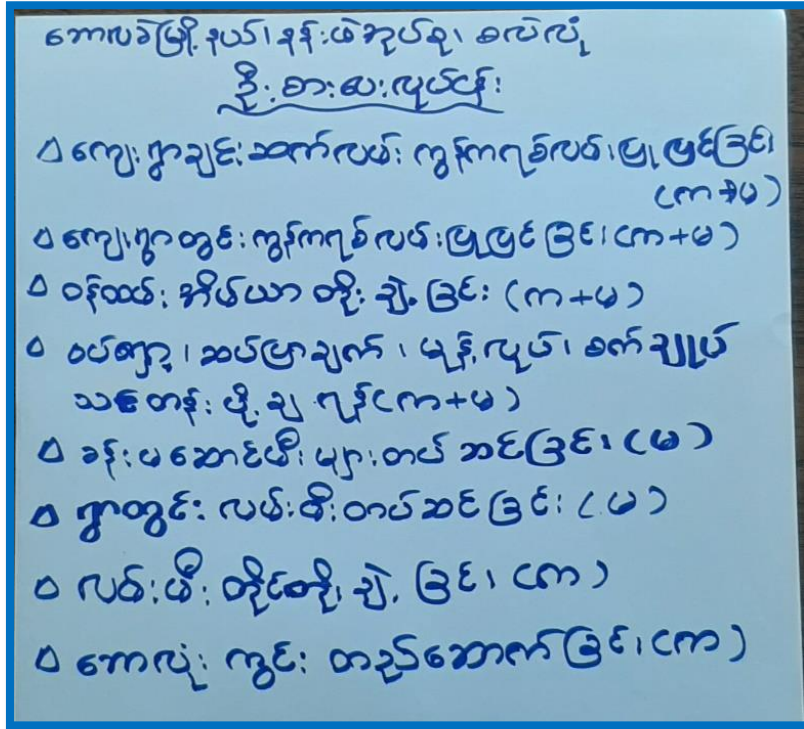 ဘောလခဲမြို့နယ်၊ နန်းဖဲအုပ်စု၊ စလဲလုံ
ဦးစားပေးလုပ်ငန်း
△ ကျေးရွာချင်းဆက်လမ်း ကွန်ကရစ်လမ်းပြုပြင်ခြင်း
(ကာ+မ)
△ ကျေးရွာတွင်းကွန်ကရစ်လမ်းပြုပြင်ခြင်း (ကာ+မ)
△ ဝန်ထမ်းအိမ်ယာ တိုးချဲ့ခြင်း (ကာ+မ)
△ စပ်ကျော့၊ ဆပ်ပြာချက်၊ မုန့်လုပ်၊ စက်ချုပ်
သင်တန်းပို့ချရန် (ကာ+မ)
△ ခန်းမဆောင်မီးများတပ်ဆင်ခြင်း (မ)
△ ရွာတွင်းလမ်းမီးတပ်ဆင်ခြင်း (မ)
△ လမ်းမီးတိုင်တိုးချဲ့ခြင်း (ကာ)
△ ဘောလုံးကွင်း တည်ဆောက်ခြင်း (ကာ)